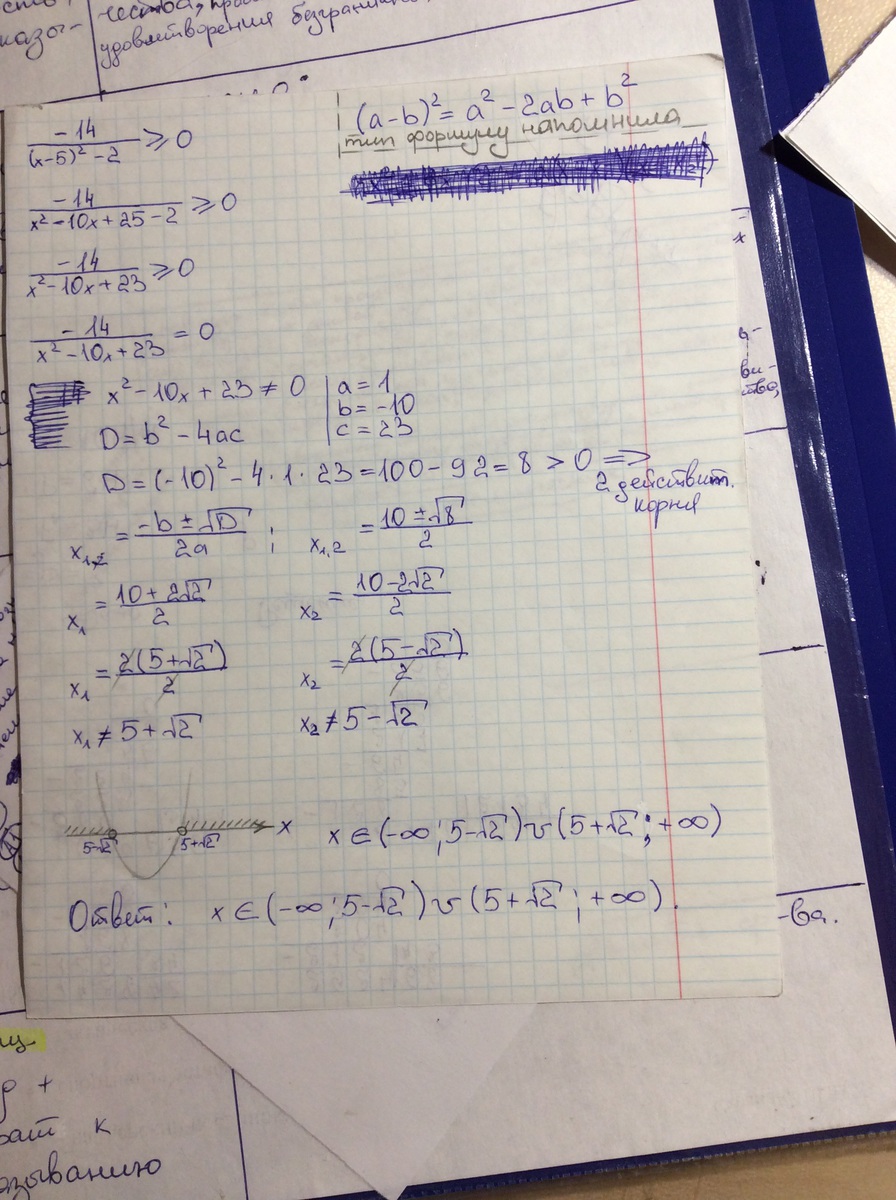 чества, про
удовлетворения безгранич
казо-
(a-b)² = a² - 2ab + b²
тип формулу напомнила
-14/((x-5)² - 2) ⩾ 0
-14/(x² - 10x + 25 - 2) ⩾ 0
-14/(x² - 10x + 23) ⩾ 0
-14/(x² - 10x + 23) = 0
x² - 10x + 23 ≠ 0 | a = 1
b = -10
D = b² - 4ac | c = 23
D = (-10)² - 4·1·23 = 100 - 92 = 8 > 0 ⟹
2 действит.
корня
x₁,₂ = (-b ± √D)/2a ; x₁,₂ = (10 ± √8)/2
x₁ = (10 + 2√2)/2 x₂ = (10 - 2√2)/2
x₁ = 2(5 + √2)/2 x₂ = 2(5 - √2)/2
x₁ ≠ 5 + √2 x₂ ≠ 5 - √2
5-√2 5+√2 x
x ∈ (-∞; 5-√2) ∪ (5+√2; +∞)
Ответ: x ∈ (-∞; 5-√2) ∪ (5+√2; +∞).
-ва.
зыванию